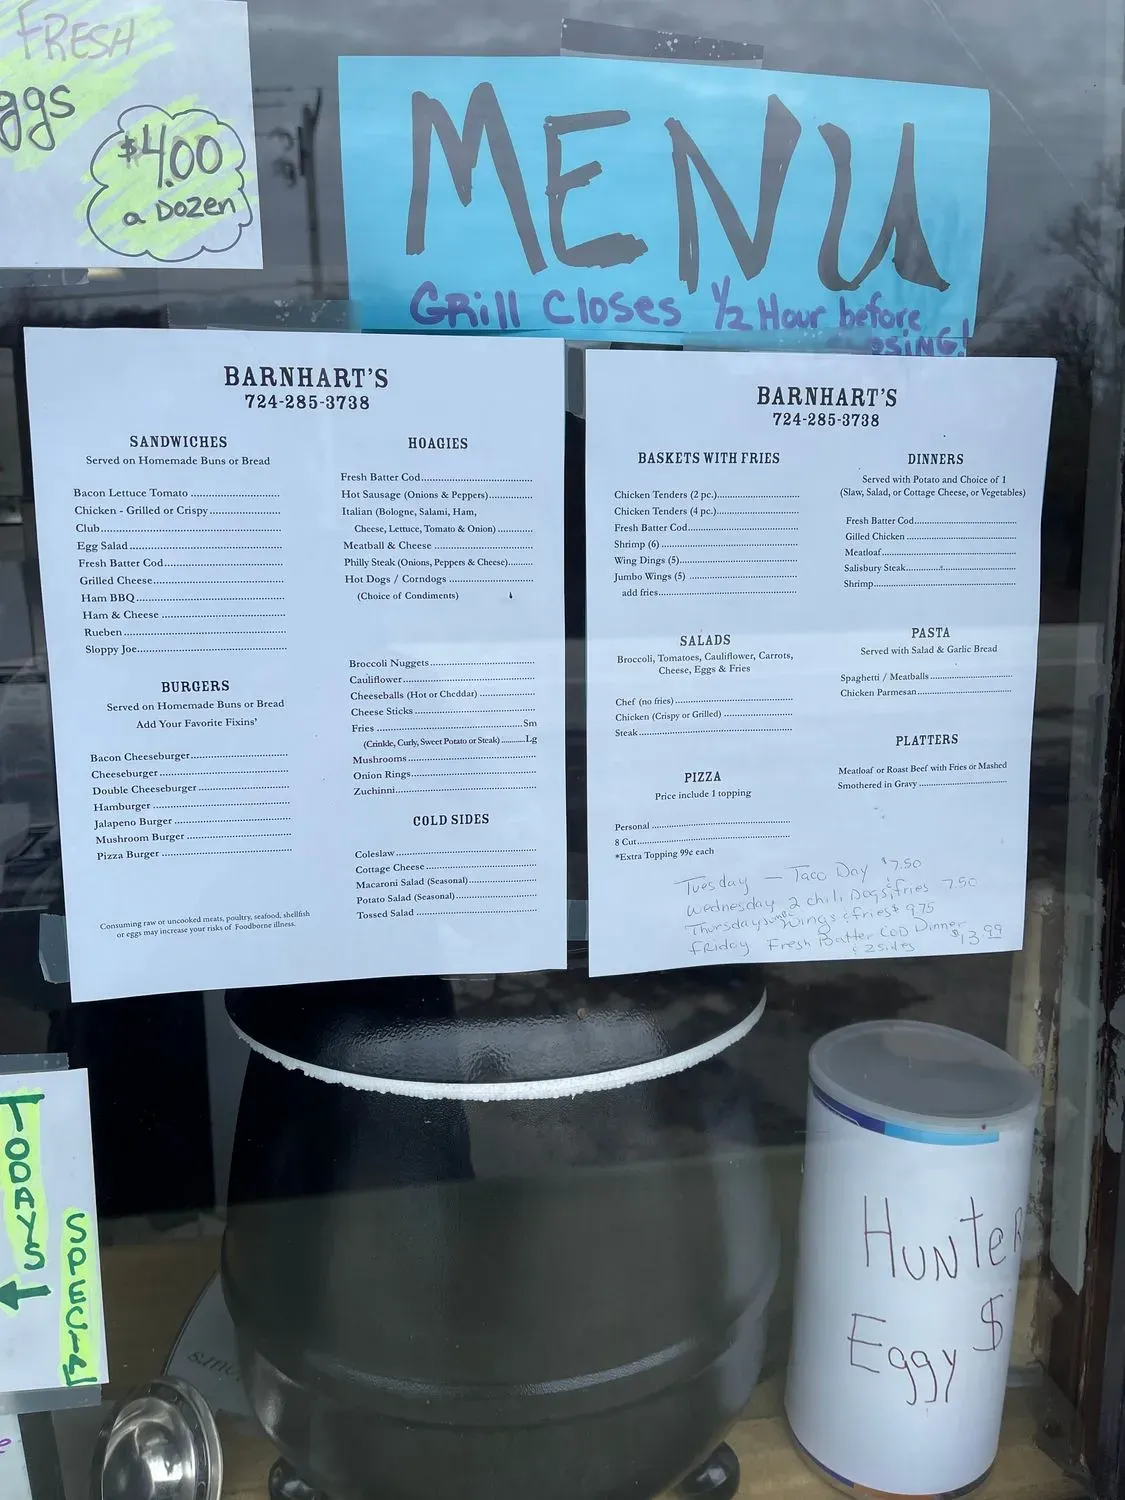 FRESH
ggs
$4.00
a Dozen
MENU
Grill Closes 1/2 Hour before
OSING!
BARNHART'S
724-285-3738
SANDWICHES
Served on Homemade Buns or Bread
Bacon Lettuce Tomato
Chicken - Grilled or Crispy
Club
Egg Salad
Fresh Batter Cod
Grilled Cheese
Ham BBQ
Ham & Cheese
Rueben
Sloppy Joe
BURGERS
Served on Homemade Buns or Bread
Add Your Favorite Fixins'
Bacon Cheeseburger
Cheeseburger
Double Cheeseburger
Hamburger
Jalapeno Burger
Mushroom Burger
Pizza Burger
Consuming raw or uncooked meats, poultry, seafood, shellfish
or eggs may increase your risks of Foodborne illness.
HOAGIES
Fresh Batter Cod
Hot Sausage (Onions & Peppers)
Italian (Bologne, Salami, Ham,
Cheese, Lettuce, Tomato & Onion)
Meatball & Cheese
Philly Steak (Onions, Peppers & Cheese)
Hot Dogs / Corndogs
(Choice of Condiments)
Broccoli Nuggets
Cauliflower
Cheeseballs (Hot or Cheddar)
Cheese Sticks
Fries Sm
(Crinkle, Curly, Sweet Potato or Steak) Lg
Mushrooms
Onion Rings
Zuchinni
COLD SIDES
Coleslaw
Cottage Cheese
Macaroni Salad (Seasonal)
Potato Salad (Seasonal)
Tossed Salad
BARNHART'S
724-285-3738
BASKETS WITH FRIES
Chicken Tenders (2 pc.)
Chicken Tenders (4 pc.)
Fresh Batter Cod
Shrimp (6)
Wing Dings (5)
Jumbo Wings (5)
add fries
SALADS
Broccoli, Tomatoes, Cauliflower, Carrots,
Cheese, Eggs & Fries
Chef (no fries)
Chicken (Crispy or Grilled)
Steak
PIZZA
Price include 1 topping
Personal
8 Cut
*Extra Topping 99¢ each
DINNERS
Served with Potato and Choice of 1
(Slaw, Salad, or Cottage Cheese, or Vegetables)
Fresh Batter Cod
Gilled Chicken
Meatloaf
Salisbury Steak
Shrimp
PASTA
Served with Salad & Garlic Bread
Spaghetti / Meatballs
Chicken Parmesan
PLATTERS
Meatloaf or Roast Beef with Fries or Mashed
Smothered in Gravy
Tuesday — Taco Day $7.50
Wednesday 2 chili Dogs & fries 7.50
Thursday Jumbo Wings & fries $9.75
Friday Fresh Batter COD Dinner $13.99
& 2 sides
TODAYS
SPECIAL
Hunter
Eggy $